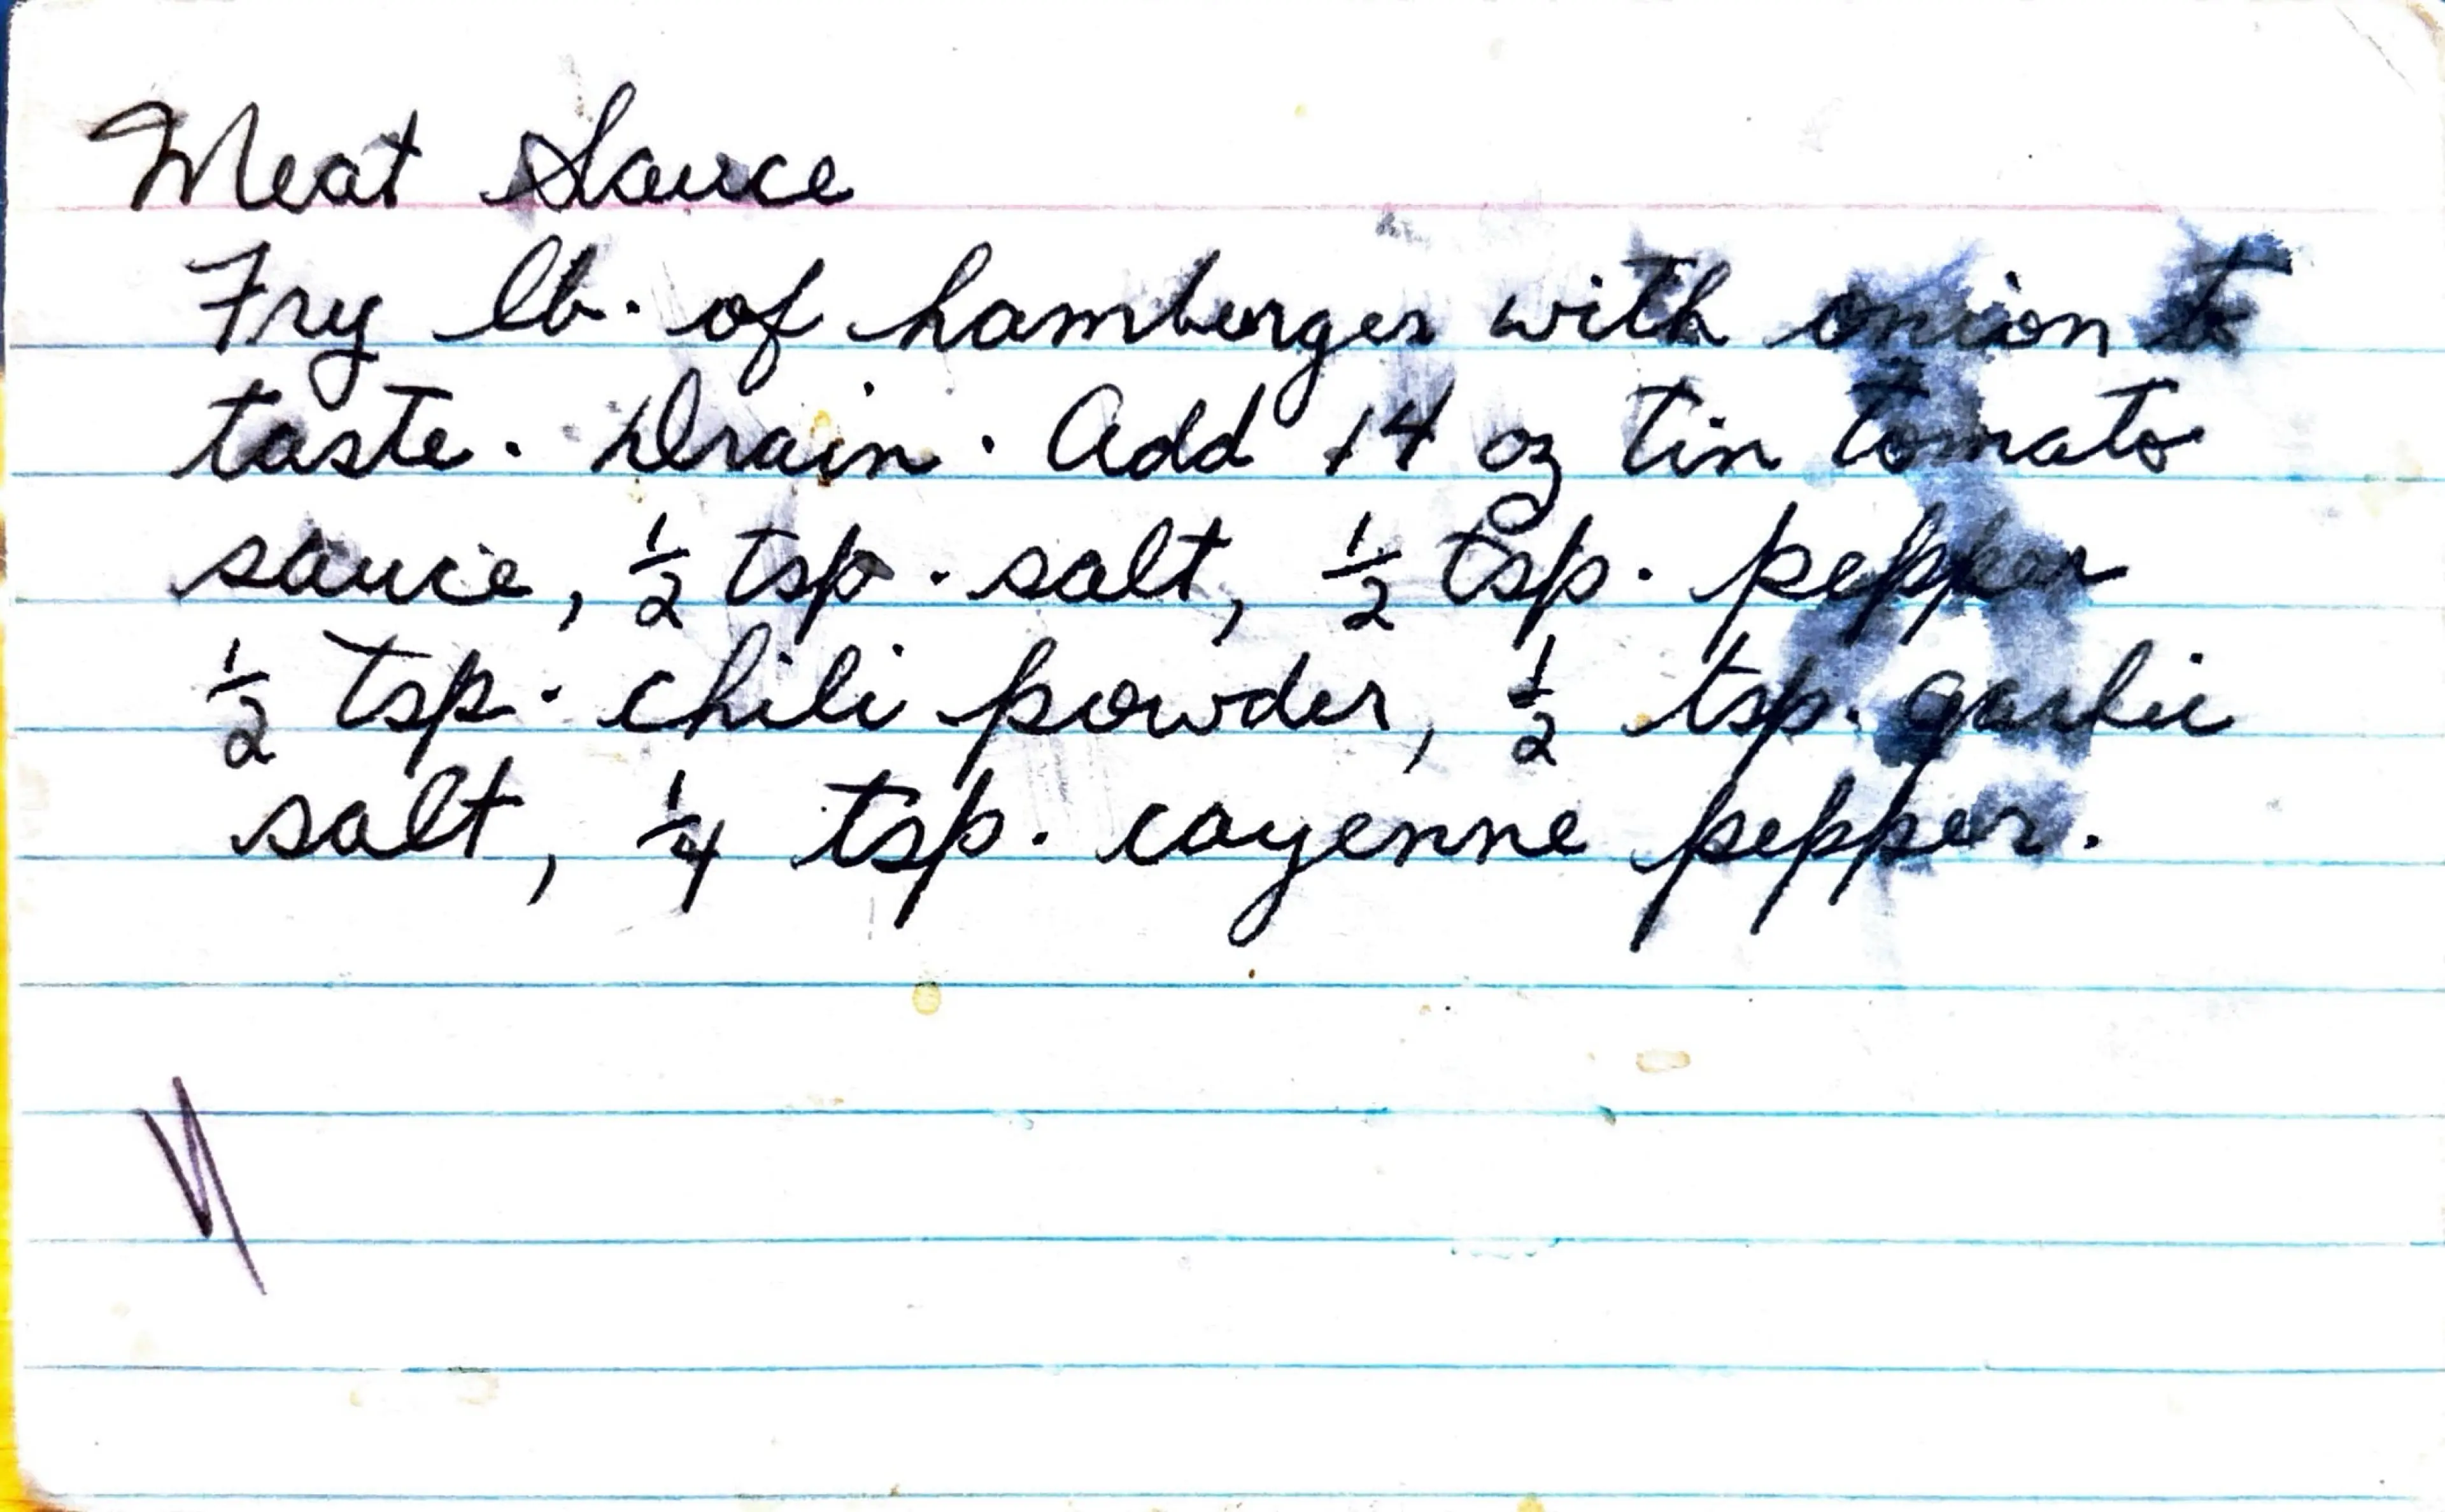 Meat Sauce
Fry lb. of hamburger with onion to
taste. Drain. Add 14 oz tin tomato
sauce, 1/2 tsp. salt, 1/2 tsp. pepper
1/2 tsp. chili powder, 1/2 tsp. garlic
salt, 1/4 tsp. cayenne pepper.